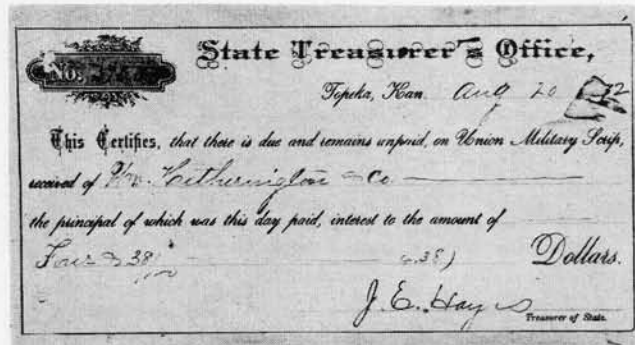 State Treasurer's Office,
No.
Topeka, Kan. Aug 20
This Certifies, that there is due and remains unpaid, on Union Military Scrip,
received of Wm. Hetherington & Co
the principal of which was this day paid, interest to the amount of
Four & 38/100 4.38) Dollars.
J. E. Hayes
Treasurer of State.